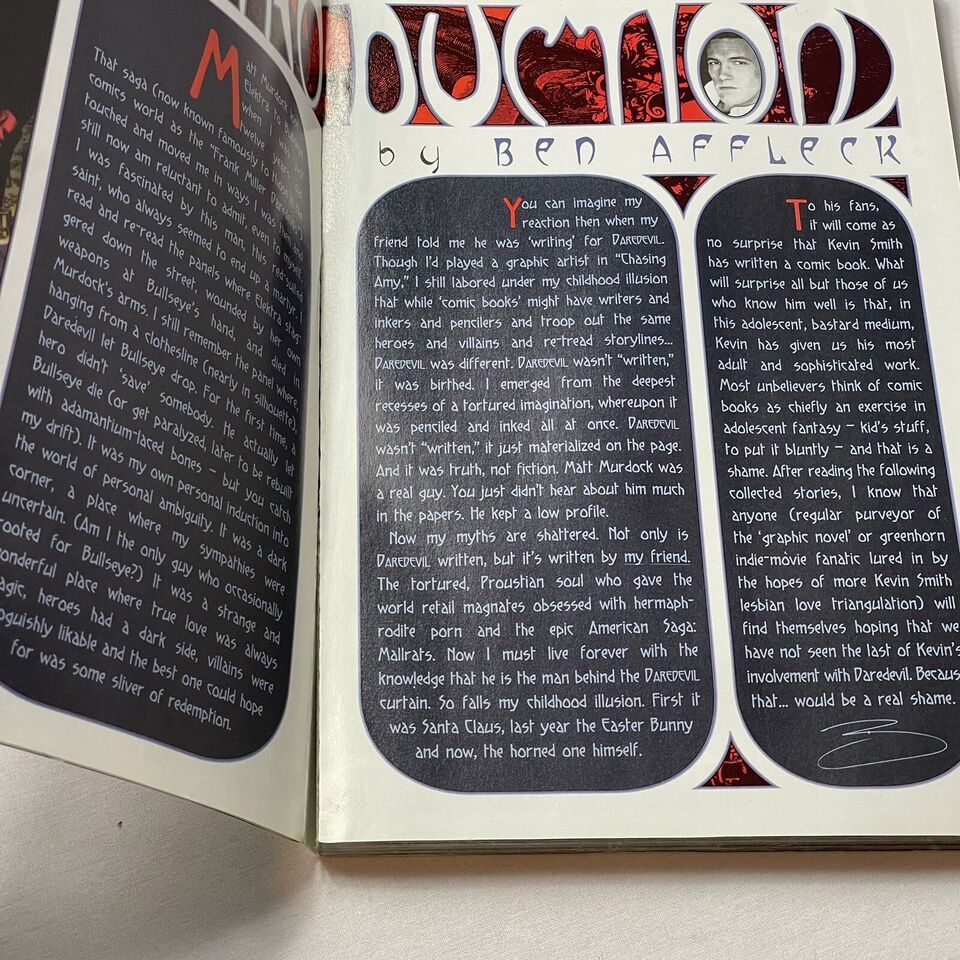 Matt Murdock
Elektra to
when I
twelve years
That saga (now known famously to
comics world as the "Frank Miller
touched and moved me in ways I was
still now am reluctant to admit, even to myself.
I was fascinated by this man, this red-suited
saint, who always seemed to end up a martyr. I
read and re-read the panels where Elektra stag-
gered down the street, wounded by her own
weapons at Bullseye's hand, and died in
Murdock's arms. I still remember the panel where,
hanging from a clothesline (nearly in silhouette),
Daredevil let Bullseye drop. For the first time, a
hero didn't 'save' somebody. He actually let
Bullseye die (or get paralyzed, later to be rebuilt
with adamantium-laced bones – but you catch
my drift). It was my own personal induction into
the world of personal ambiguity. It was a dark
corner, a place where my sympathies were
uncertain. (Am I the only guy who occasionally
rooted for Bullseye?) It was a strange and
wonderful place where true love was always
magic, heroes had a dark side, villains were
roguishly likable and the best one could hope
for was some sliver of redemption.
DUCTION
by BEN AFFLECK
You can imagine my
reaction then when my
friend told me he was 'writing' for DAREDEVIL.
Though I'd played a graphic artist in "Chasing
Amy," I still labored under my childhood illusion
that while 'comic books' might have writers and
inkers and pencilers and troop out the same
heroes and villains and re-tread storylines...
DAREDEVIL was different. DAREDEVIL wasn't "written,"
it was birthed. I emerged from the deepest
recesses of a tortured imagination, whereupon it
was penciled and inked all at once. DAREDEVIL
wasn't "written," it just materialized on the page.
And it was truth, not fiction. Matt Murdock was
a real guy. You just didn't hear about him much
in the papers. He kept a low profile.
Now my myths are shattered. Not only is
DAREDEVIL written, but it's written by my friend.
The tortured, Proustian soul who gave the
world retail magnates obsessed with hermaph-
rodite porn and the epic American Saga:
Mallrats. Now I must live forever with the
knowledge that he is the man behind the DAREDEVIL
curtain. So falls my childhood illusion. First it
was Santa Claus, last year the Easter Bunny
and now, the horned one himself.
To his fans,
it will come as
no surprise that Kevin Smith
has written a comic book. What
will surprise all but those of us
who know him well is that, in
this adolescent, bastard medium,
Kevin has given us his most
adult and sophisticated work.
Most unbelievers think of comic
books as chiefly an exercise in
adolescent fantasy – kid's stuff,
to put it bluntly – and that is a
shame. After reading the following
collected stories, I know that
anyone (regular purveyor of
the 'graphic novel' or greenhorn
indie-movie fanatic lured in by
the hopes of more Kevin Smith
lesbian love triangulation) will
find themselves hoping that we
have not seen the last of Kevin's
involvement with Daredevil. Becaus
that... would be a real shame.